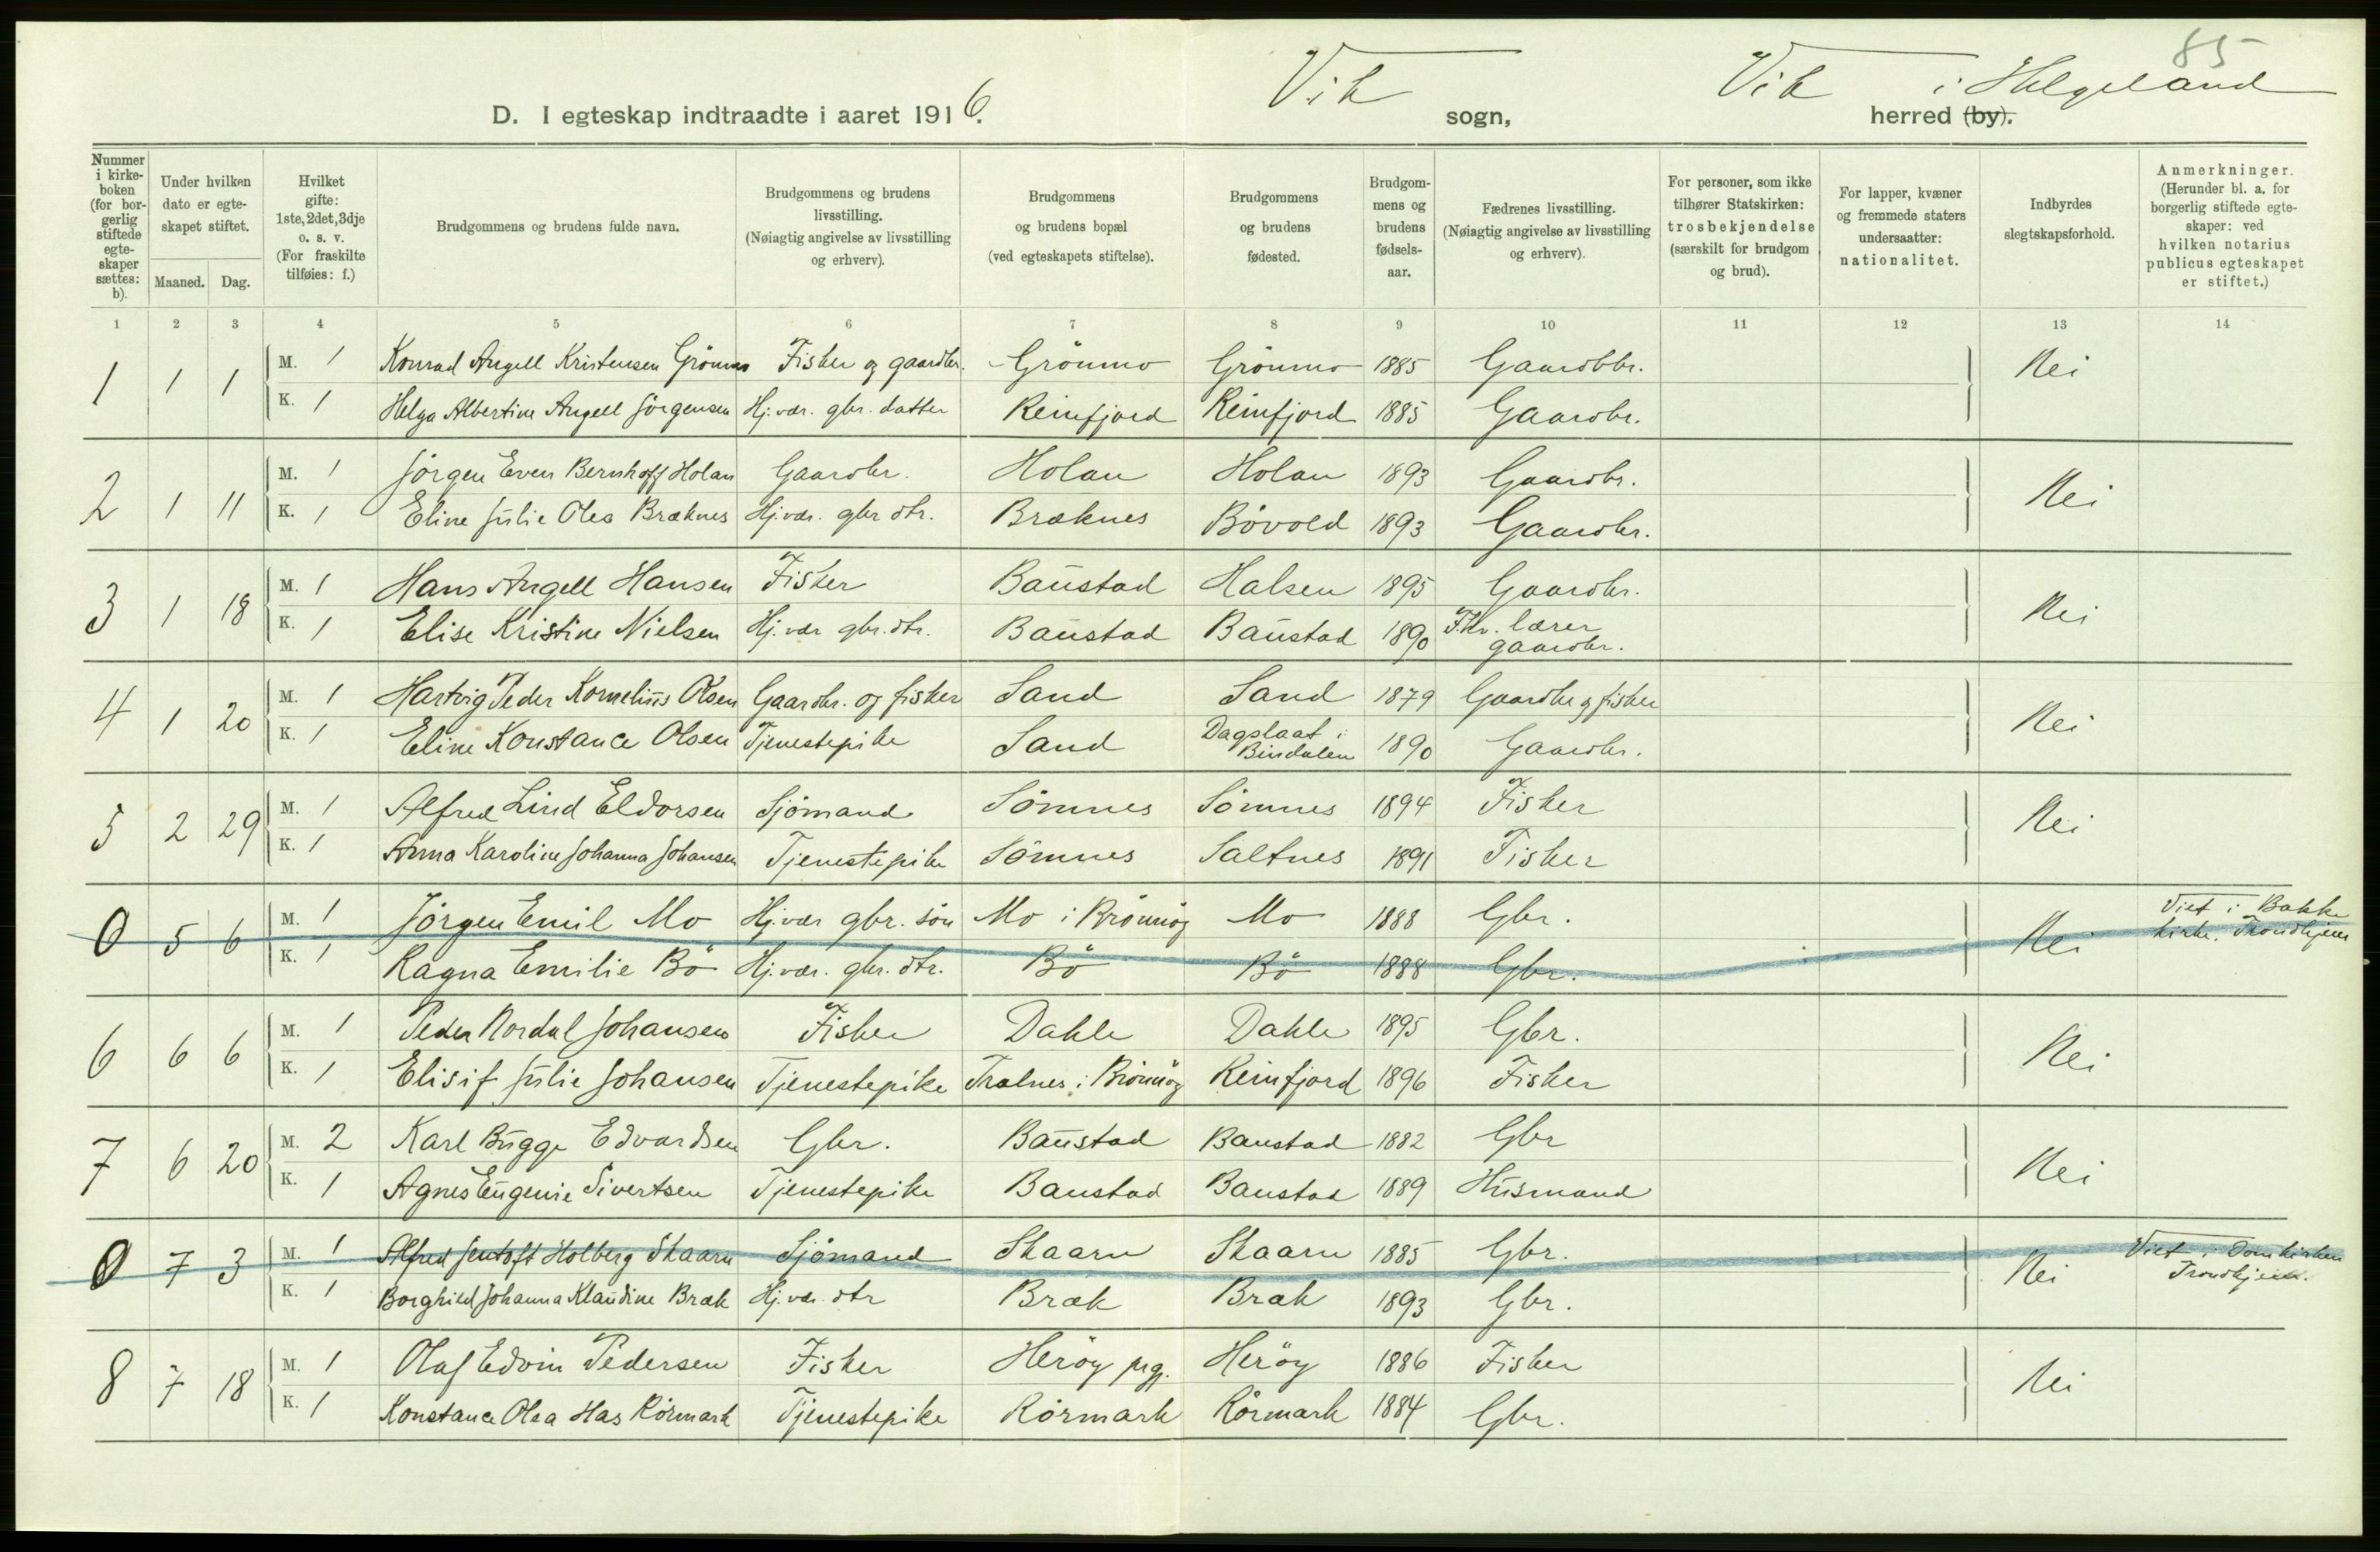 85
D. I egteskap indtraadte i aaret 1916. Vik sogn, Vik i Helgeland herred (by).
Nummer i kirke-boken (for bor-gerlig stiftede egte-skaper sættes: b).
Under hvilken dato er egte-skapet stiftet.
Maaned. Dag.
Hvilket gifte: 1ste, 2det, 3dje o. s. v. (For fraskilte tilføies: f.)
Brudgommens og brudens fulde navn.
Brudgommens og brudens livsstilling. (Nøiagtig angivelse av livsstilling og erhverv).
Brudgommens og brudens bopæl (ved egteskapets stiftelse).
Brudgommens og brudens fødested.
Brudgom-mens og brudens fødsels-aar.
Fædrenes livsstilling. (Nøiagtig angivelse av livsstilling og erhverv).
For personer, som ikke tilhører Statskirken: trosbekjendelse (særskilt for brudgom og brud).
For lapper, kvæner og fremmede staters undersaatter: nationalitet.
Indbyrdes slegtskapsforhold.
Anmerkninger. (Herunder bl. a. for borgerlig stiftede egte-skaper: ved hvilken notarius publicus egteskapet er stiftet.)
1 2 3 4 5 6 7 8 9 10 11 12 13 14
1 1 1 M. 1 Konrad Angell Kristensen Grönmo Fisker og gaardbr. Grönmo Grönmo 1885 Gaardbr. Nei
K. 1 Helga Albertine Angell Jörgensen Hj.vær. gbr. datter Reinfjord Reinfjord 1885 Gaardbr.
2 1 11 M. 1 Jörgen Even Bernhoff Holan Gaardbr. Holan Holan 1893 Gaardbr. Nei
K. 1 Eline Julie Olea Bræknes Hj.vær. gbr dtr. Bræknes Bövold 1893 Gaardbr.
3 1 18 M. 1 Hans Angell Hansen Fisker Baustad Halsen 1895 Gaardbr. Nei
K. 1 Elise Kristine Nielsen Hj.vær gbr. dtr. Baustad Baustad 1890 F.hv. lærer gaardbr.
4 1 20 M. 1 Hartvig Peder Kornelius Olsen Gaardbr. og fisker Sand Sand 1879 Gaardbr og fisker Nei
K. 1 Eline Konstance Olsen Tjenestepike Sand Dagslaat i Bindalen 1890 Gaardbr.
5 2 29 M. 1 Alfred Lind Eldorsen Sjömand Sömnes Sömnes 1894 Fisker Nei
K. 1 Anna Karoline Johanna Johansen Tjenestepike Sömnes Saltnes 1891 Fisker
0 5 6 M. 1 Jörgen Emil Mo Hj.vær gbr. sön Mo i Brönnöy Mo 1888 Gbr. Nei Viet i Bakke kirke. Trondhjem
K. 1 Ragna Emilie Bö Hj.vær. gbr. dtr. Bö Bö 1888 Gbr.
6 6 6 M. 1 Peder Nordal Johansen Fisker Dahle Dahle 1895 Gbr. Nei
K. 1 Elisif Julie Johansen Tjenestepike Trælnes i Brönnöy Reinfjord 1896 Fisker
7 6 20 M. 2 Karl Bugge Edvardsen Gbr. Baustad Baustad 1882 Gbr Nei
K. 1 Agnes Eugenie Sivertsen Tjenestepike Baustad Baustad 1889 Husmand
0 7 3 M. 1 Alfred Jentoft Holberg Skaarn Sjömand Skaarn Skaarn 1885 Gbr. Nei Viet i Domkirken Trondhjem.
K. 1 Borghild Johanna Klaudine Bræk Hj.vær. dtr Bræk Bræk 1893 Gbr.
8 7 18 M. 1 Olaf Edvin Pedersen Fisker Heröy prgj. Heröy 1886 Fisker Nei
K. 1 Konstance Olea Has Rörmark Tjenestepike Rörmark Rörmark 1884 Gbr.